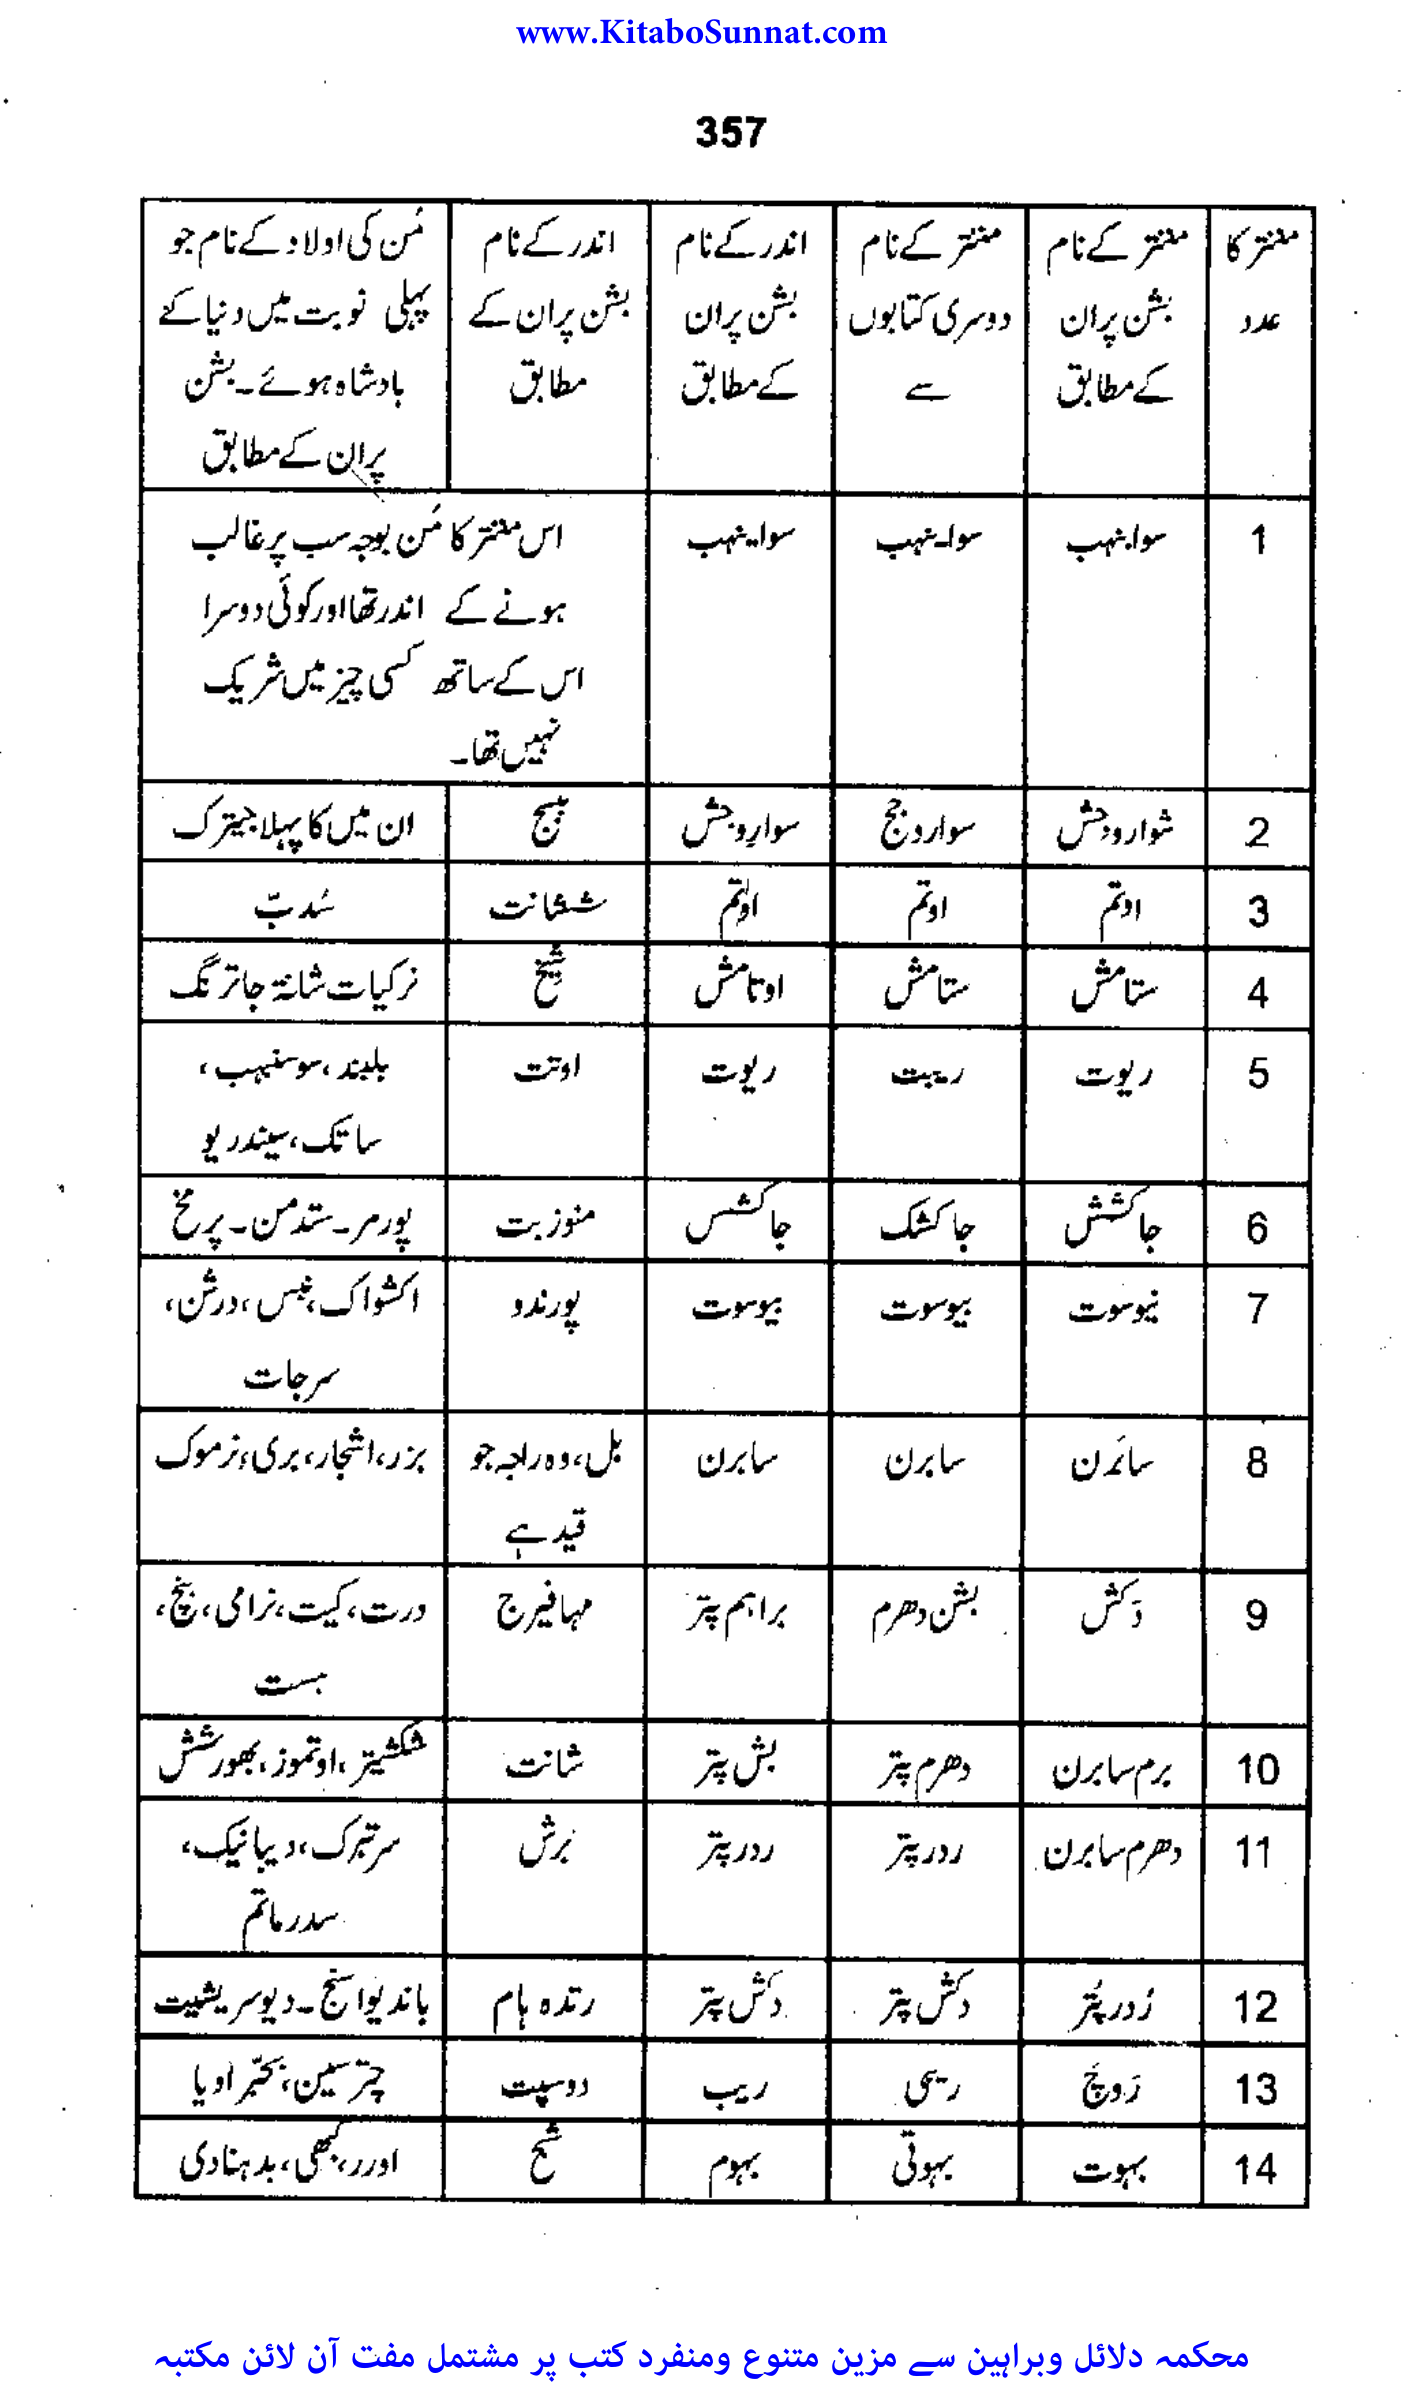 www.KitaboSunnat.com
357
منتر کا عدد
منتر کے نام بشن پران کے مطابق
منتر کے نام دوسری کتابوں سے
اندر کے نام بشن پران کے مطابق
اندر کے نام بشن پران کے مطابق
مُن کی اولاد کے نام جو پہلی نوبت میں دنیا کے بادشاہ ہوئے۔ بشن پران کے مطابق
1 سواینہب سواینہب سواینہب
اس منتر کا مُن بوجہ سب پر غالب
ہونے کے اندر تھا اور کوئی دوسرا
اس کے ساتھ کسی چیز میں شریک
نہیں تھا۔
2 شواروجش سواروجج سواروجش ان میں کا پہلا جیترک
3 اوتم اوتم اوتم ششانت سُدبّ
4 ستامش ستامش اوتامش شیخ نرکیات شانتہ جاترنگ
5 ریوت ریبت ریوت اوتت بلبند، سوسنیہب،
ساتک، سیندریو
6 جاکشش جاکشک جاکشس منوزبت پورمر۔ ستدمن۔ پرمخ
7 نیوسوت بیوسوت بیوسوت پورندو اکشواک، نبس، درشن،
سرجات
8 سائرن سابرن سابرن بل، وہ راجہ جو بزر، اشجار، بری، نرموک
قید ہے
9 دَکش بشن دھرم براہم پتر مہافیرج درت، کیت، نرامی، پنج،
ہست
10 برم سابرن دھرم پتر بش پتر شانت شکشیتر، اوتموز، بھورشش
11 دھرم سابرن ردر پتر ردر پتر بَرش سرتبرک، دیبانیک،
سدر ماتم
12 رُدر پُتر دکش پتر دکش پتر رتدہ ہام باندیوا سنج۔ دیوسریشیت
13 رَوچَ ریبی ریب دوسپت چتر سین، بخِتر اَدیا
14 بہوت بہوتی بہوم شخ اورر، کبھی، بدہنادی
محکمہ دلائل وبراہین سے مزین متنوع ومنفرد کتب پر مشتمل مفت آن لائن مکتبہ